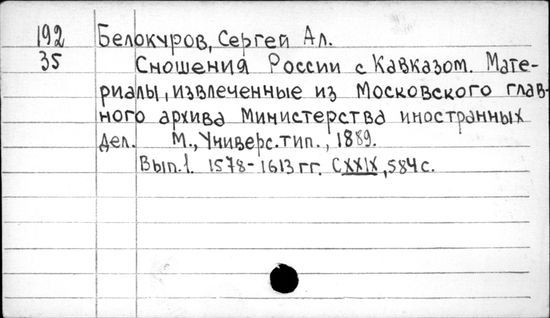 192 Белокуров, Сергей Ал.
35 Сношения России с Кавказом. Мате-
риалы, извлеченные из Московского глав-
ного архива Министерства иностранных
дел. М., Универс. тип., 1889.
Вып. 1. 1578-1613 гг. CXXIX, 584 с.